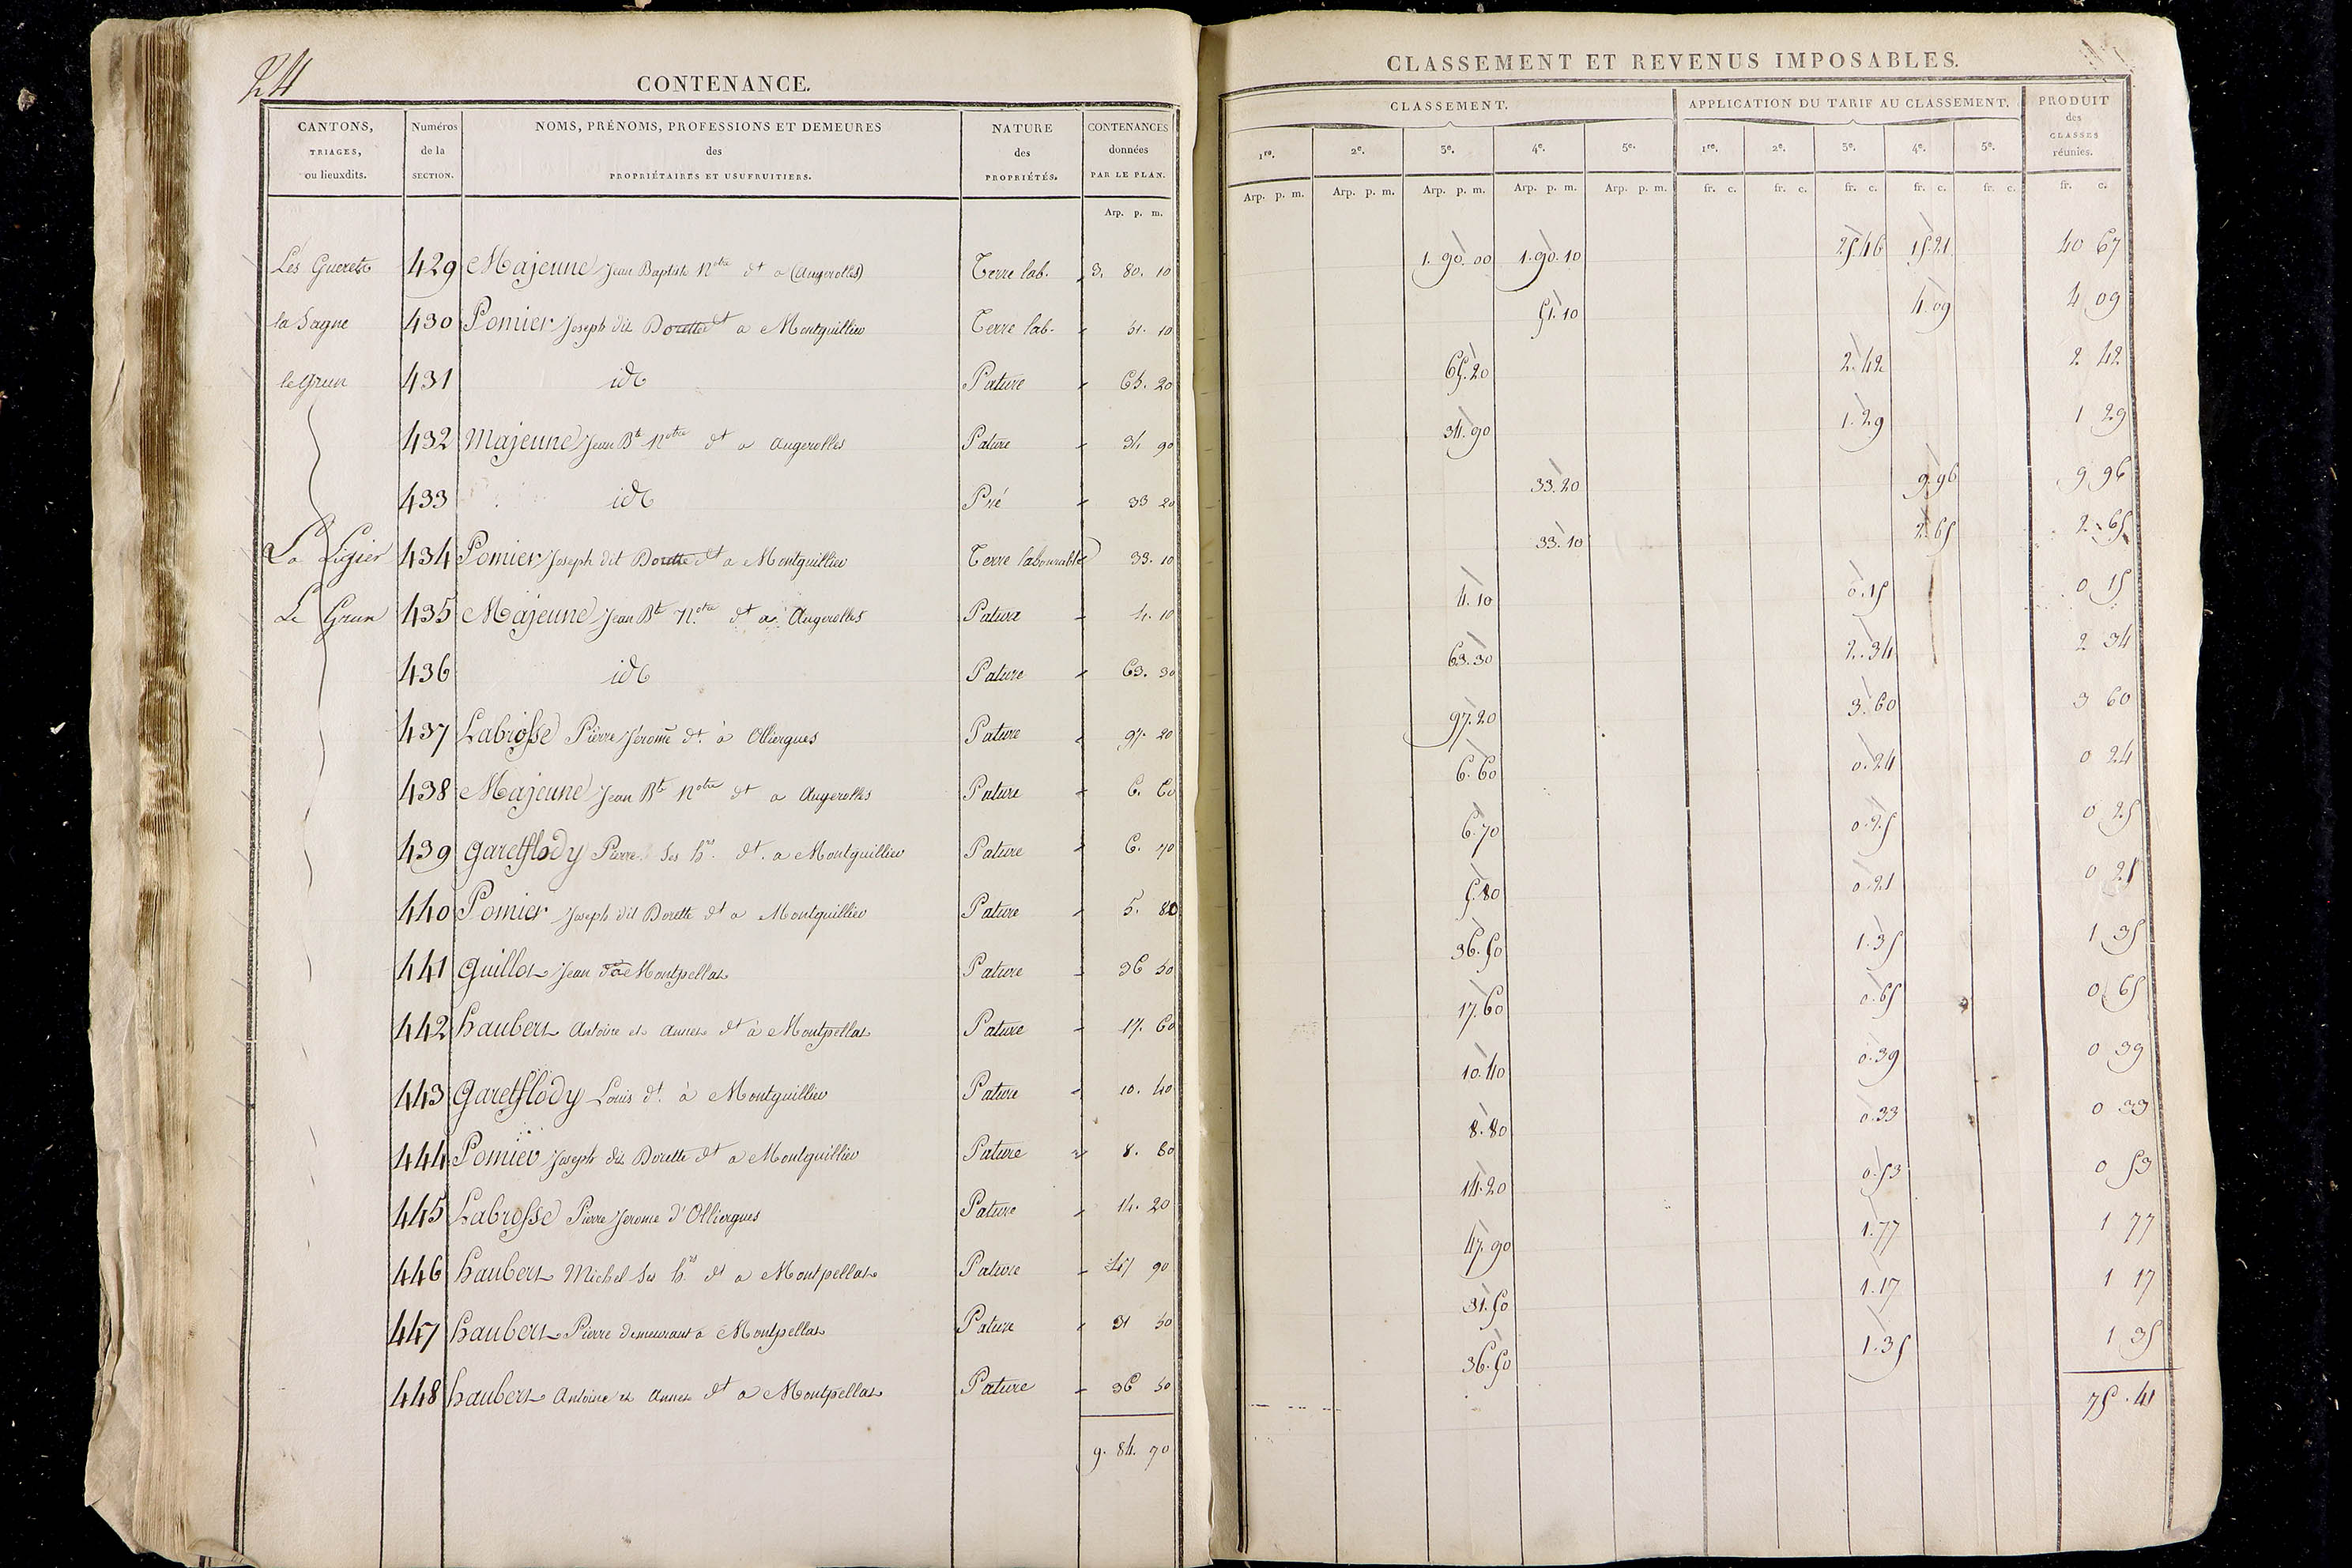 24
CONTENANCE.
CANTONS, TRIAGES, ou lieuxdits. Numéros de la SECTION. NOMS, PRÉNOMS, PROFESSIONS ET DEMEURES des PROPRIÉTAIRES ET USUFRUITIERS. NATURE des PROPRIÉTÉS. CONTENANCES données PAR LE PLAN.
Arp. p. m.
Les Guerets 429 Majeune Jean Baptiste Notre dt a (Augerolles) Terre lab. 3. 80. 10
la Sagne 430 Pomier Joseph dit Dorette dt a Montguillier Terre lab. 51. 10
le Grun 431 id Pature 65. 20
432 Majeune Jean Bte Notre dt a Augerolles Pature 34 90
433 id Pré 33 20
La Ligier 434 Pomier Joseph dit Dorette dt a Montguillier Terre labourable 33. 10
Le Grun 435 Majeune Jean Bte Notre dt a Augerolles Pature 4. 10
436 id Pature 63. 30
437 Labrosse Pierre Jérome dt. à Olliergues Pature 97. 20
438 Majeune Jean Bte Notre dt a Augerolles Pature 6. 60
439 Garetflody Pierre Ses hrs. dt. a Montguillier Pature 6. 70
440 Pomier Joseph dit Dorette dt a Montguillier Pature 5. 80
441 Guillot Jean dt a Montpellat Pature 36 50
442 haubert Antoine et Annet dt à Montpellat Pature 17. 60
443 Garetflody Louis dt. à Montguillier Pature 10. 40
444 Pomier Joseph dit Dorette dt a Montguillier Pature 8. 80
445 Labrosse Pierre Jerome d'Olliergues Pature 14. 20
446 haubert Michel Ses hrs dt a Montpellat Pature 47 90
447 haubert Pierre demeurant a Montpellat Pature 31 50
448 haubert Antoine et Annet dt a Montpellat Pature 36 50
9. 84. 70
CLASSEMENT ET REVENUS IMPOSABLES.
CLASSEMENT. APPLICATION DU TARIF AU CLASSEMENT. PRODUIT des CLASSES réunies.
1re. 2e. 3e. 4e. 5e. 1re. 2e. 3e. 4e. 5e.
Arp. p. m. Arp. p. m. Arp. p. m. Arp. p. m. Arp. p. m. fr. c. fr. c. fr. c. fr. c. fr. c. fr. c.
1. 90. 00 1. 90. 10 25.46 15.21 40 67
51. 10 4. 09 4 09
65. 20 2. 42 2 42
34. 90 1. 29 1 29
33. 20 9. 96 9 96
33. 10 2. 65 2. 65
4. 10 0. 15 0 15
63. 30 2. 34 2 34
97. 20 3. 60 3 60
6. 60 0. 24 0 24
6. 70 0. 25 0 25
5. 80 0. 21 0 21
36. 50 1. 35 1 35
17. 60 0. 65 0 65
10. 40 0. 39 0 39
8. 80 0. 33 0 33
14. 20 0. 53 0 53
47. 90 1. 77 1 77
31. 50 1. 17 1 17
36. 50 1. 35 1 35
75. 41